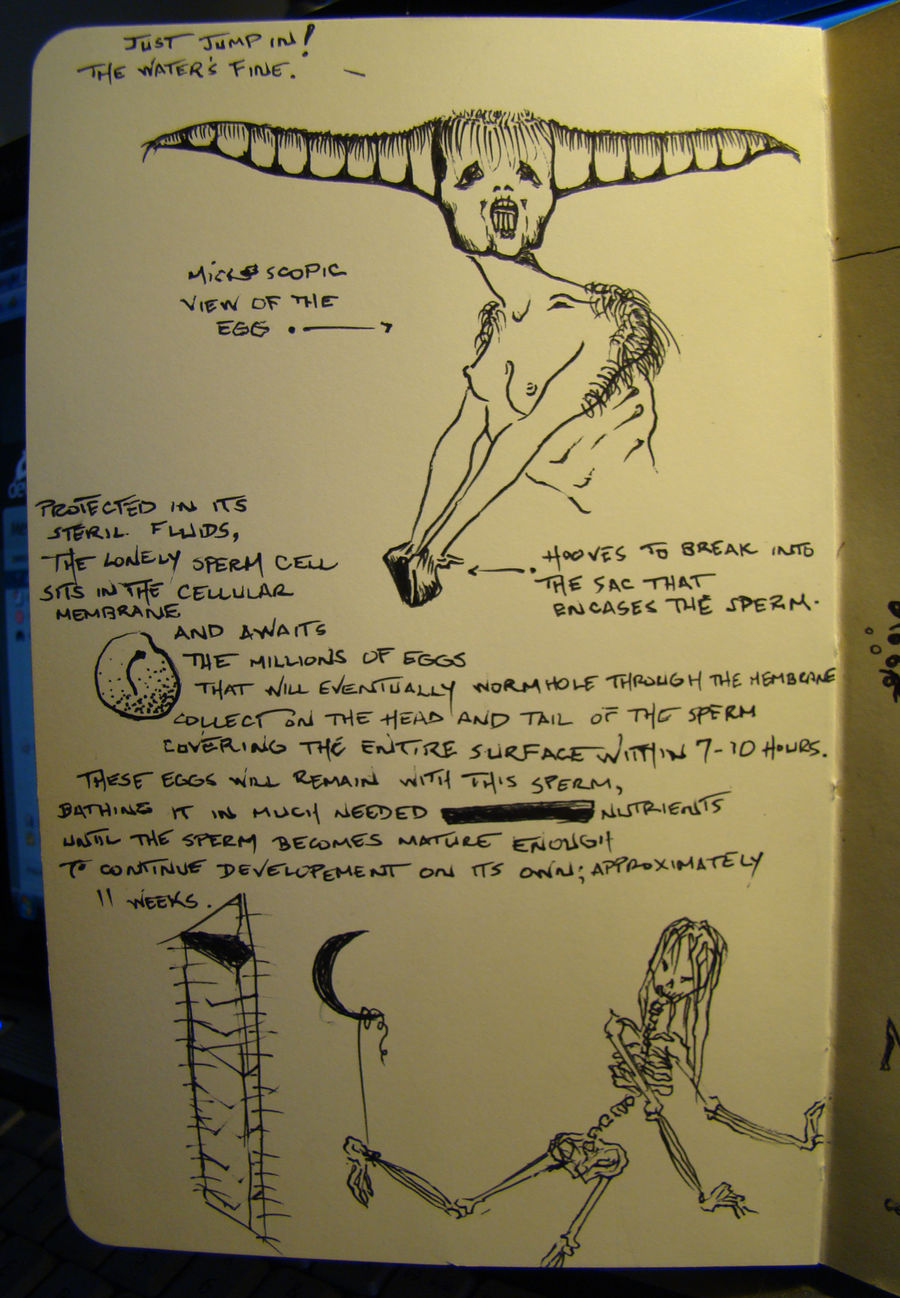 JUST JUMP IN!
THE WATER'S FINE.
MICROSCOPIC
VIEW OF THE
EGG
PROTECTED IN ITS
STERIL FLUIDS,
THE LONELY SPERM CELL
SITS IN THE CELLULAR
MEMBRANE
AND AWAITS
THE MILLIONS OF EGGS
THAT WILL EVENTUALLY WORMHOLE THROUGH THE MEMBRANE
COLLECT ON THE HEAD AND TAIL OF THE SPERM
COVERING THE ENTIRE SURFACE WITHIN 7-10 HOURS.
THESE EGGS WILL REMAIN WITH THIS SPERM,
BATHING IT IN MUCH NEEDED NUTRIENTS
UNTIL THE SPERM BECOMES MATURE ENOUGH
TO CONTINUE DEVELOPEMENT ON ITS OWN; APPROXIMATELY
11 WEEKS.
HOOVES TO BREAK INTO
THE SAC THAT
ENCASES THE SPERM.